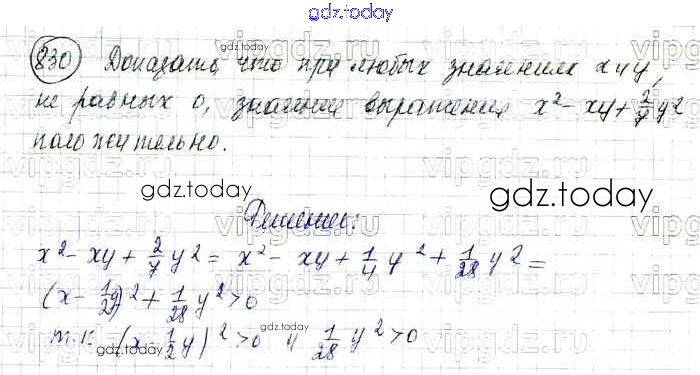 gdz.today
830 Доказать, что при любых значениях x и y,
не равных 0, значение выражения x² - xy + 2/7 y²
положительно.
gdz.today
gdz.today
Решение:
x² - xy + 2/7 y² = x² - xy + 1/4 y² + 1/28 y² =
(x - 1/2 y)² + 1/28 y² > 0
gdz.today
т.к. (x - 1/2 y)² > 0 и 1/28 y² > 0
gdz.today